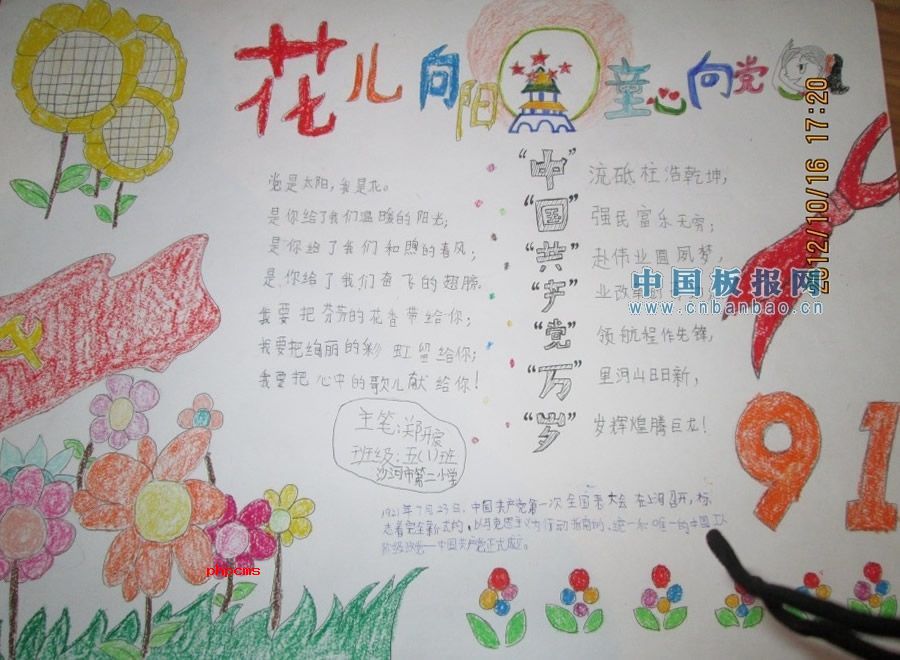 花儿向阳 童心向党
党是太阳,我是花。
是你给了我们温暖的阳光;
是你给了我们和煦的春风;
是你给了我们奋飞的翅膀。
我要把芬芳的花香带给你;
我要把绚丽的彩虹留给你;
我要把心中的歌儿献给你!
“中”流砥柱浩乾坤,
“国”强民富乐无穷;
“共”赴伟业圆夙梦,
“产”业改
“党”领航程作先锋,
“万”里河山日日新,
“岁”岁辉煌腾巨龙!
主笔:郑
班级:五(1)班
沙河市第二小学
1921年7月23日,中国共产党第一次全国代表大会在上海召开,标
志着完全新式的、以马克思主义为行动指南的、统一和唯一的中国工人
阶级政党—中国共产党正式成立。
91
中国板报网
www.cnbanbao.cn
2012/10/16 17:20
phpcms